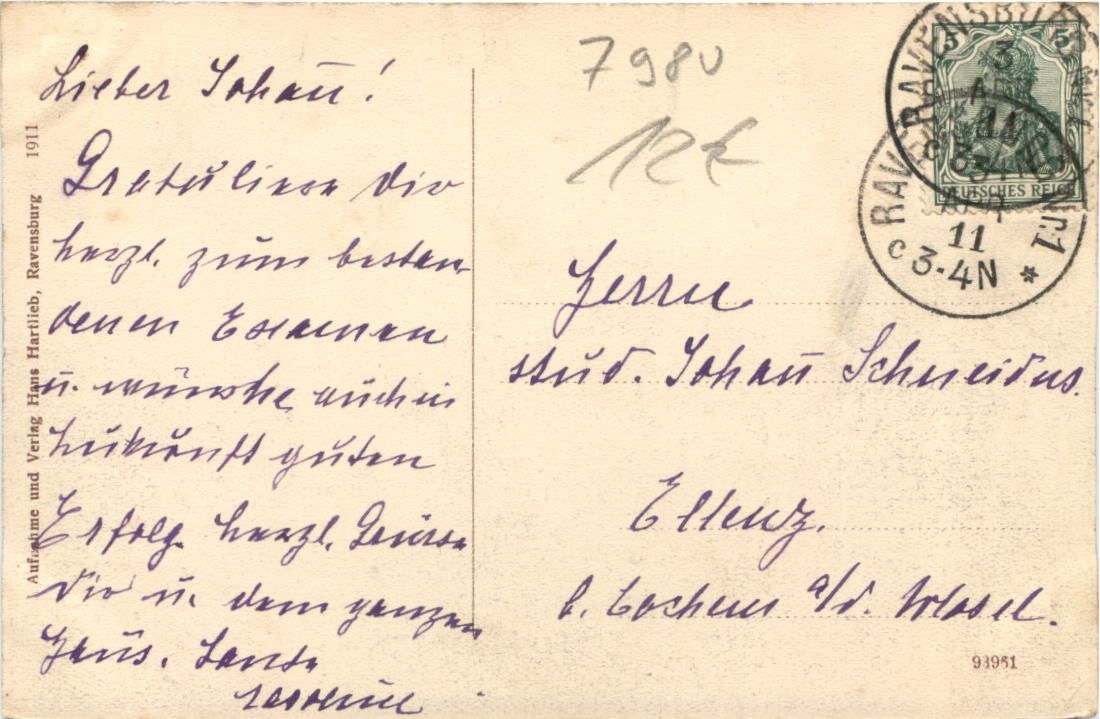 Lieber Johañ!
Gratuliere Dir
herzl. zum bestan-
denen Examen
u. wünsche auch in
Zukunft guten
Erfolg. Herzl. Grüsse
Dir u. dem ganzen
Haus. Tante
Aufnahme und Verlag Hans Hartlieb, Ravensburg 1911
7980
12€
RAVENSBURG Nr.1
3
APR
11
DEUTSCHES REICH
5 5
RAVENSBURG Nr.1
APR
11
c 3-4N *
Herrn
stud. Johañ Schneiders.
Ellenz.
b. Cochem a/d. Mosel.
93961